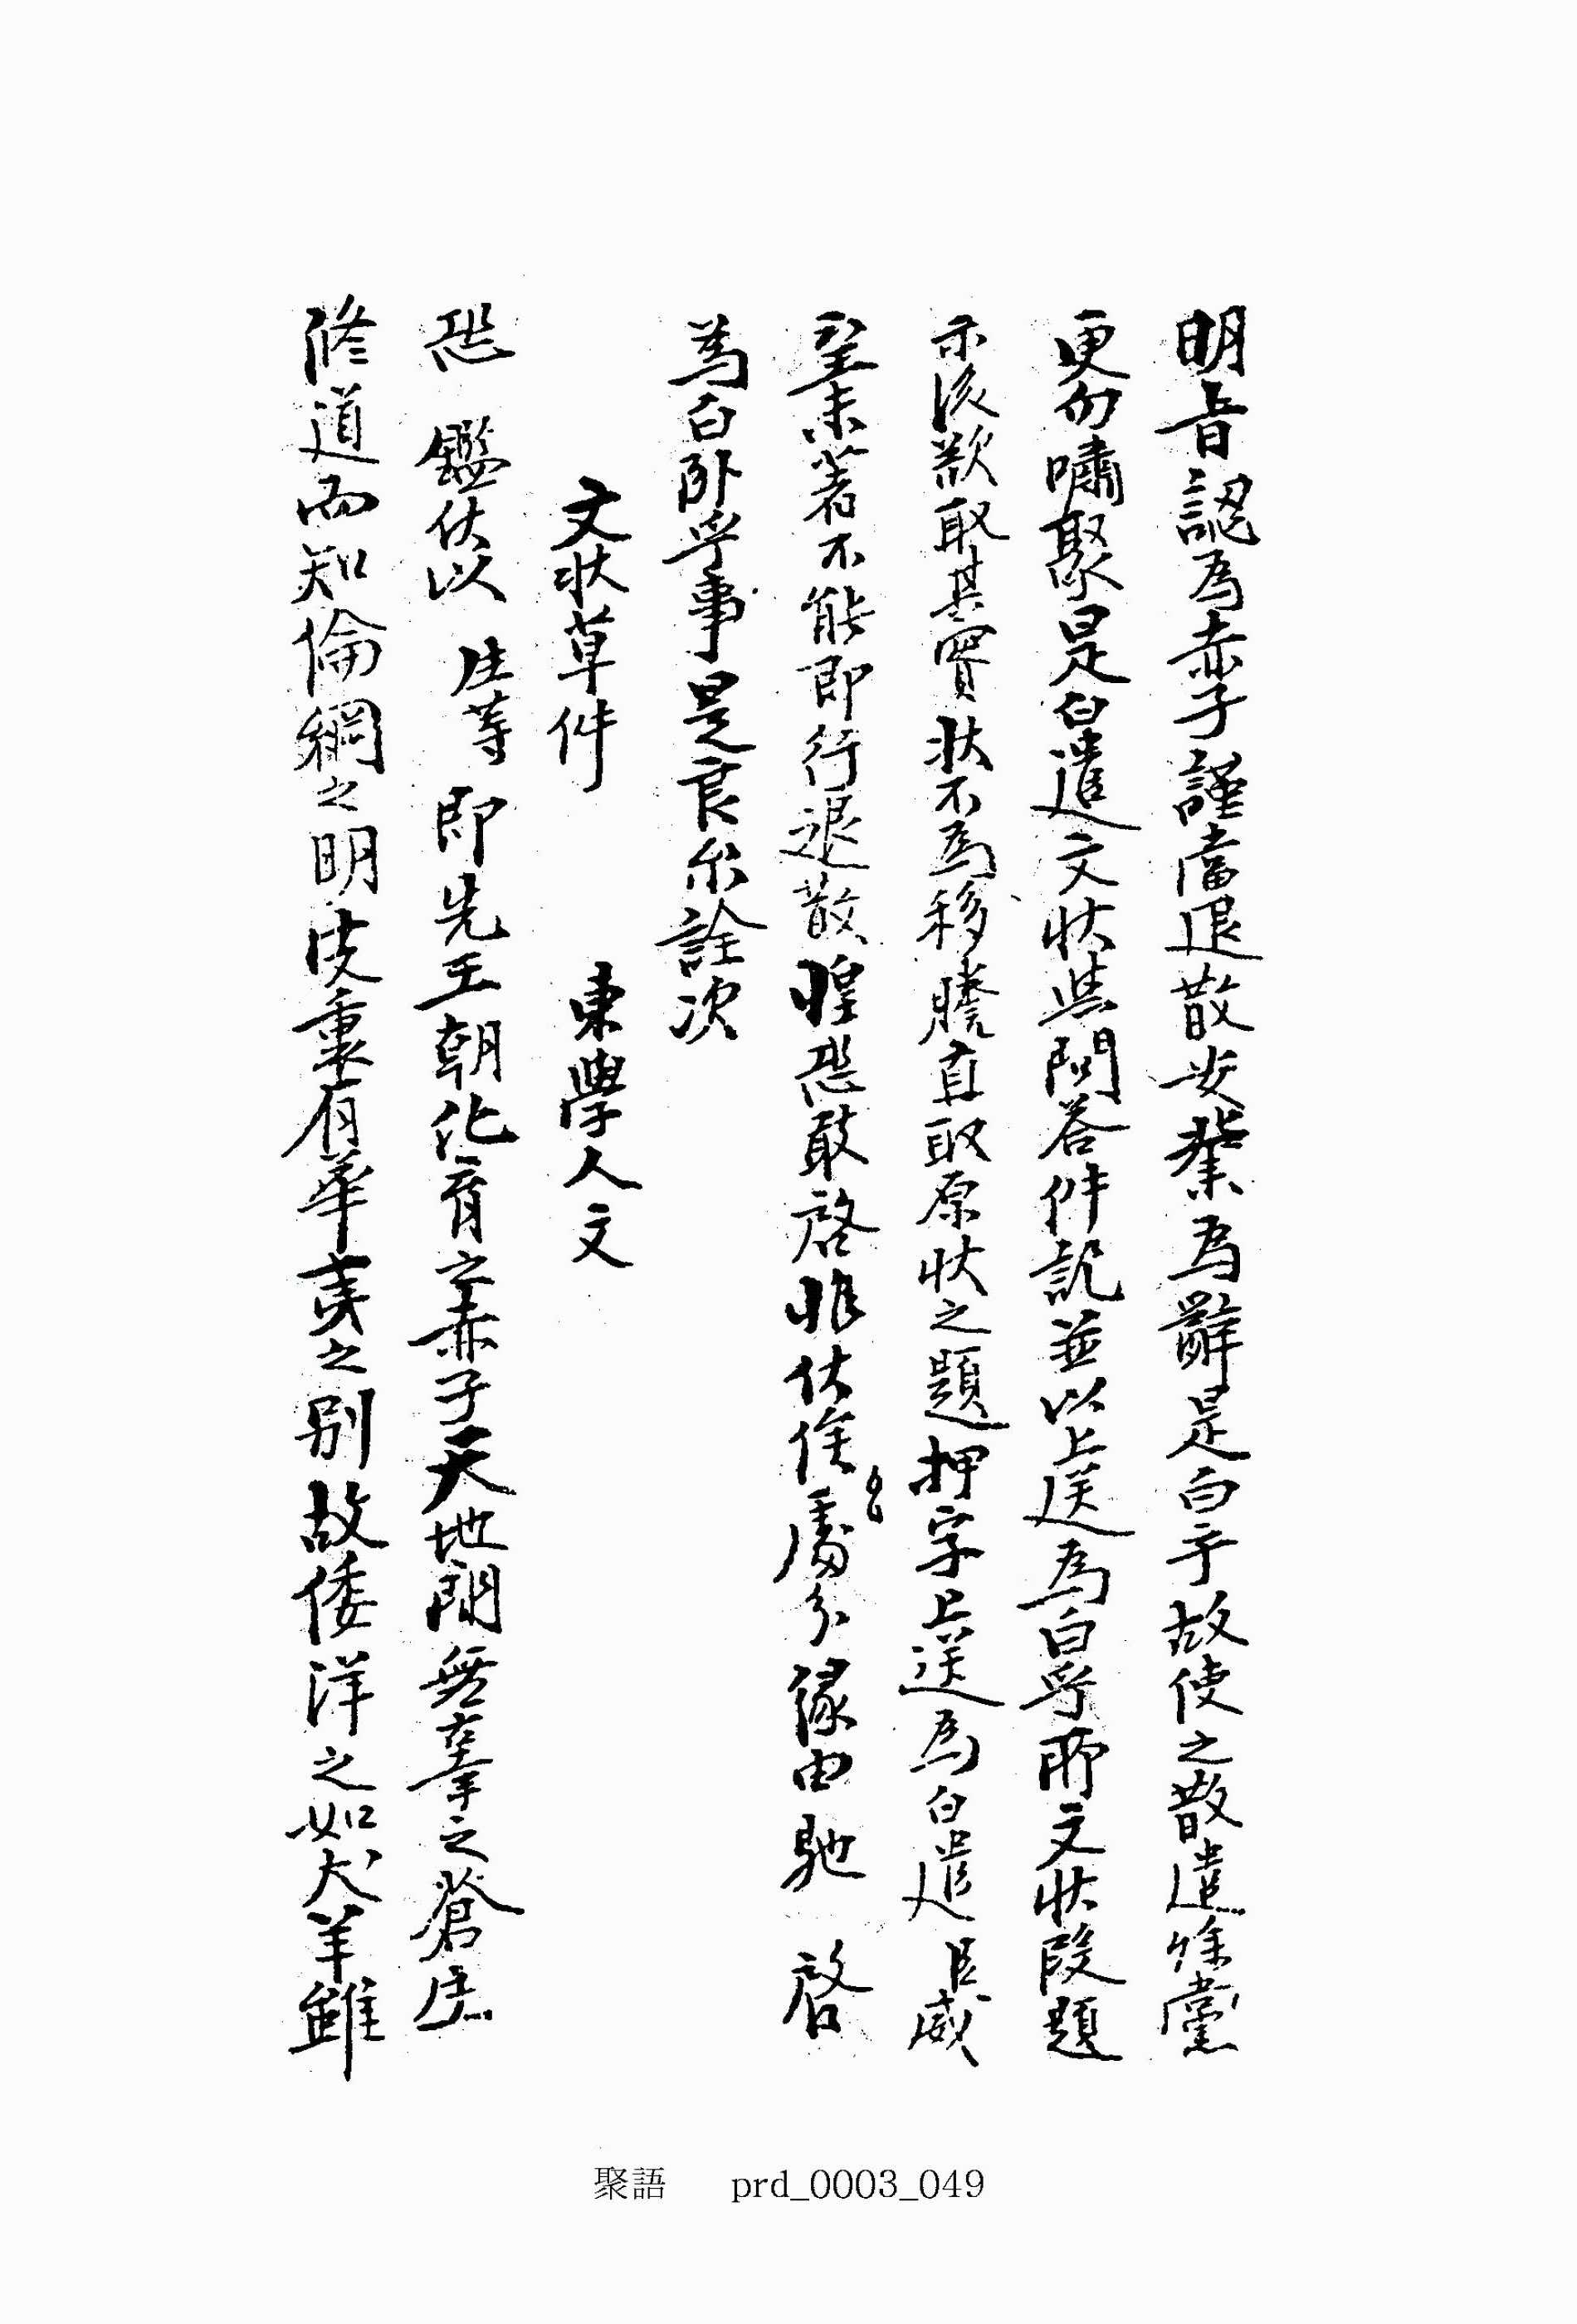 明旨認為赤子謹當退散安業為辭是白乎故使之散遣餘黨
更勿嘯聚是白遣文狀與問答件記並以上送為白乎所文狀段題
示後欲取其實狀不為移謄直取原狀之題押字上送為白遣臣威
望未著不能即行退散惶恐敢啓惟伏俟處分緣由馳 啓
為白卧乎事是良尒詮次
文狀草件 東學人文
恐 鑑伏以 生等 即先王朝化育之赤子天地間無辜之蒼生
修道而知倫綱之明皮裏有華夷之別故倭洋之如犬羊雖
聚語 prd_0003_049